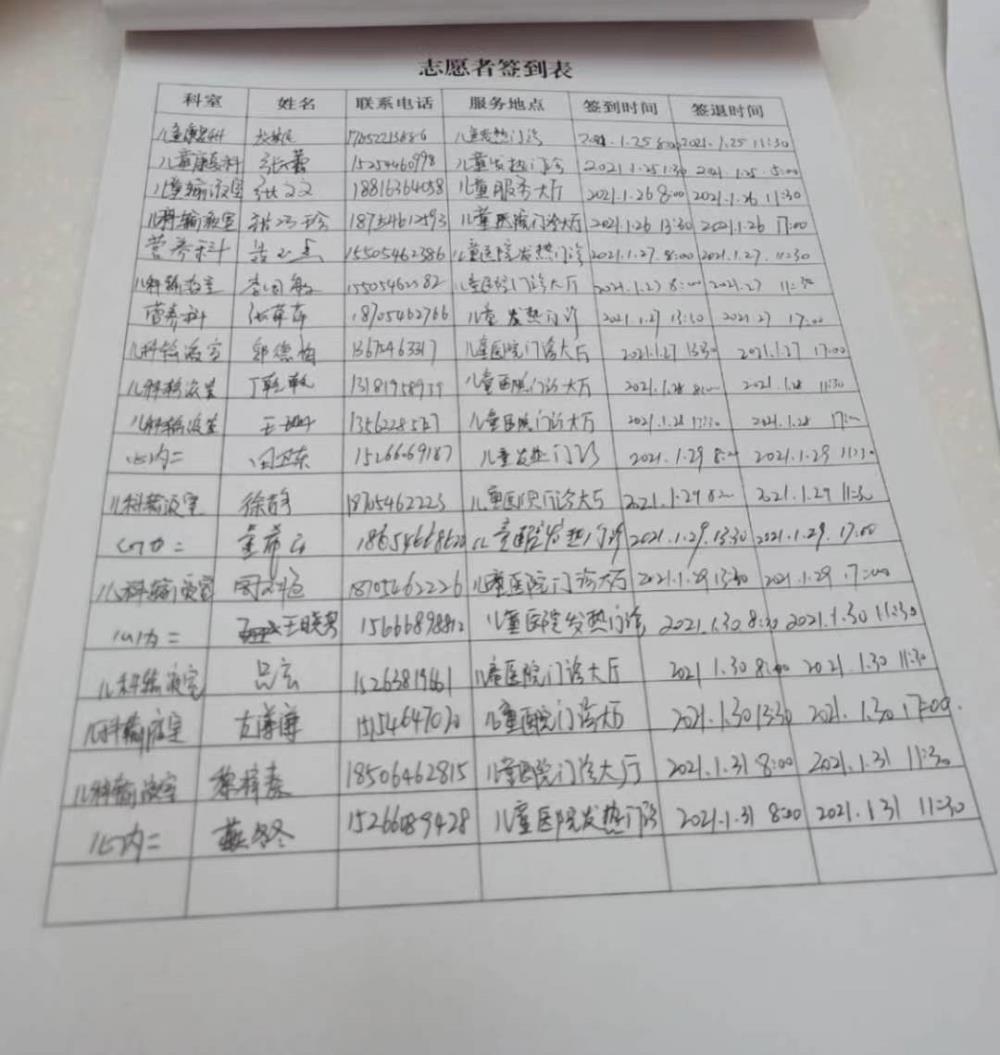 志愿者签到表
科室 姓名 联系电话 服务地点 签到时间 签退时间
儿童康复科 儿童发热门诊 2021.1.25 8:00 2021.1.25 11:30
儿童康复科 张蕾 15254460998 儿童发热门诊 2021.1.25 1:30 2021.1.25 5:00
儿童输液室 张文文 18816364058 儿童服务大厅 2021.1.26 8:00 2021.1.26 11:30
儿科输液室 18754612593 儿童医院门诊大厅 2021.1.26 13:30 2021.1.26 17:00
营养科 15505462386 儿童医院发热门诊 2021.1.27. 8:00 2021.1.27. 11:30
儿科输液室 儿童医院门诊大厅 2021.1.27 8:00 2021.27 11:30
营养科 18705462766 儿童发热门诊 2021.1.27 13:30 2021.27 17:00
儿科输液室 郭德梅 儿童医院门诊大厅 2021.1.27 13:30 2021.1.27 17:00
儿科输液室 13181958939 儿童医院门诊大厅 2021.1.28 8:00 2021.1.28 11:30
儿科输液室 儿童医院门诊大厅 2021.1.28 13:30 2021.1.28 17:00
心内二 闫卫东 15266669187 儿童发热门诊 2021.1.29 8:00 2021.1.29 11:30
儿科输液室 徐静 18705462223 儿童医院门诊大厅 2021.1.29 8:00 2021.1.29 11:30
心内二 儿童医院发热门诊 2021.1.29. 13:30 2021.1.29. 17:00
儿科输液室 18705462226 儿童医院门诊大厅 2021.1.29 13:30 2021.1.29 17:00
心内二 王晓男 15666898812 儿童医院发热门诊 2021.1.30 8:30 2021.1.30 11:30
儿科输液室 吕宏 15263819661 儿童医院门诊大厅 2021.1.30 8:00 2021.1.30 11:30
儿科输液室 15154647020 儿童医院门诊大厅 2021.1.30 13:30 2021.1.30 17:00.
儿科输液室 黎梓秦 18506462815 儿童医院门诊大厅 2021.1.31 8:00 2021.1.31 11:30
心内二 燕冬冬 15266089428 儿童医院发热门诊 2021.1.31 8:00 2021.1.31 11:30